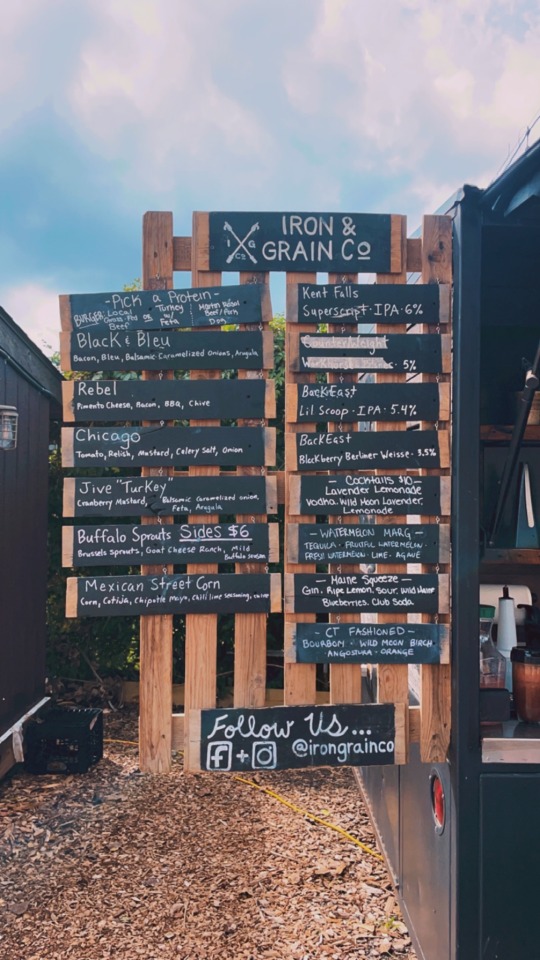 IRON &
GRAIN Co
I G
Co
-Pick a Protein-
BURGER: Local
Grass Fed or
Beef
Turkey
w/
Feta
Martin Rosol
Beef/Pork
Dog
Black & Bleu
Bacon, Bleu, Balsamic Caramelized Onions, Arugula
Rebel
Pimento Cheese, Bacon, BBQ, Chive
Chicago
Tomato, Relish, Mustard, Celery Salt, Onion
Jive "Turkey"
Cranberry Mustard, Balsamic Caramelized onion,
Feta, Arugula
Buffalo Sprouts Sides $6
Brussels Sprouts, Goat Cheese Ranch, Mild
Buffalo
Mexican Street Corn
Corn, Cotija, Chipotle Mayo, Chili lime seasoning,
Kent Falls
Superscript · IPA · 6%
CounterWeight
5%
BackEast
Lil Scoop · IPA · 5.4%
BackEast
Blackberry Berliner Weisse · 3.5%
- Cocktails $10 -
Lavender Lemonade
Vodka, Wild Moon Lavender,
Lemonade
- WATERMELON MARG -
TEQUILA · FRUITFUL WATERMELON ·
FRESH WATERMELON · LIME · AGAVE
- Maine Squeeze -
Gin, Ripe Lemon Sour, Wild Maine
Blueberries, Club Soda
- CT FASHIONED -
BOURBON · WILD MOON BIRCH
· ANGOSTURA · ORANGE
Follow Us...
f + @irongrainco